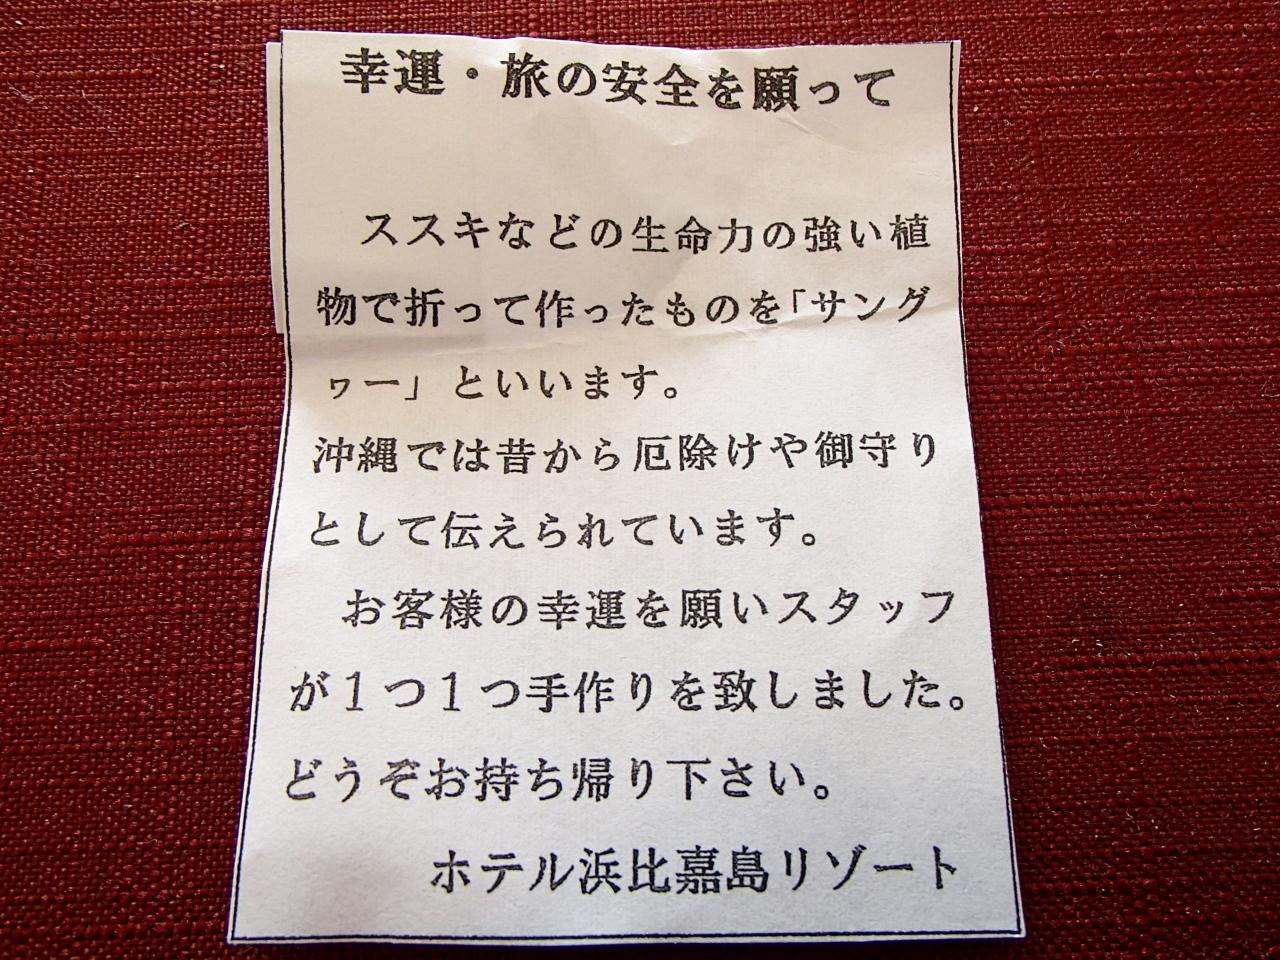 幸運・旅の安全を願って
ススキなどの生命力の強い植
物で折って作ったものを「サング
ヮー」といいます。
沖縄では昔から厄除けや御守り
として伝えられています。
お客様の幸運を願いスタッフ
が１つ１つ手作りを致しました。
どうぞお持ち帰り下さい。
ホテル浜比嘉島リゾート